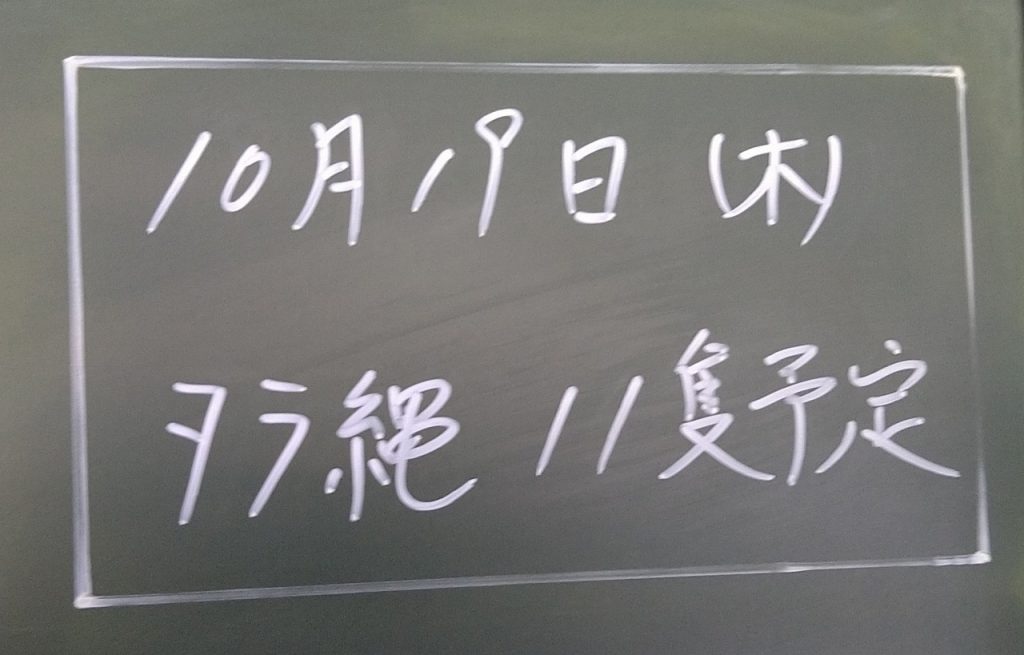 10月19日(木)
タラ縄 11隻予定